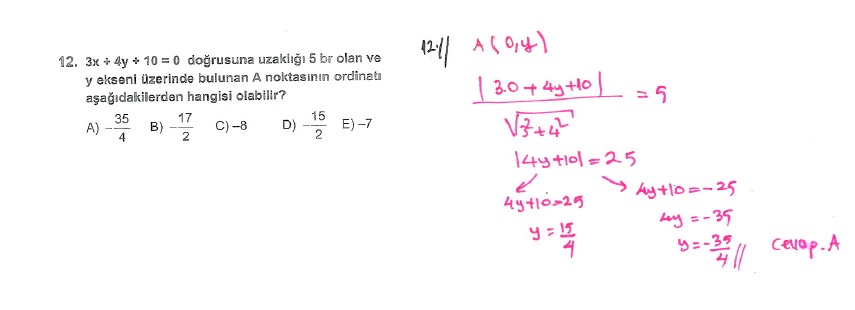 12. 3x + 4y + 10 = 0 doğrusuna uzaklığı 5 br olan ve
y ekseni üzerinde bulunan A noktasının ordinatı
aşağıdakilerden hangisi olabilir?
A) -35/4 B) -17/2 C) -8 D) -15/2 E) -7
12// A(0,y)
|3.0+4y+10| / √3²+4² = 5
|4y+10| = 25
4y+10=25 4y+10=-25
4y = -35
y = 15/4 y = -35/4 // Cevap. A